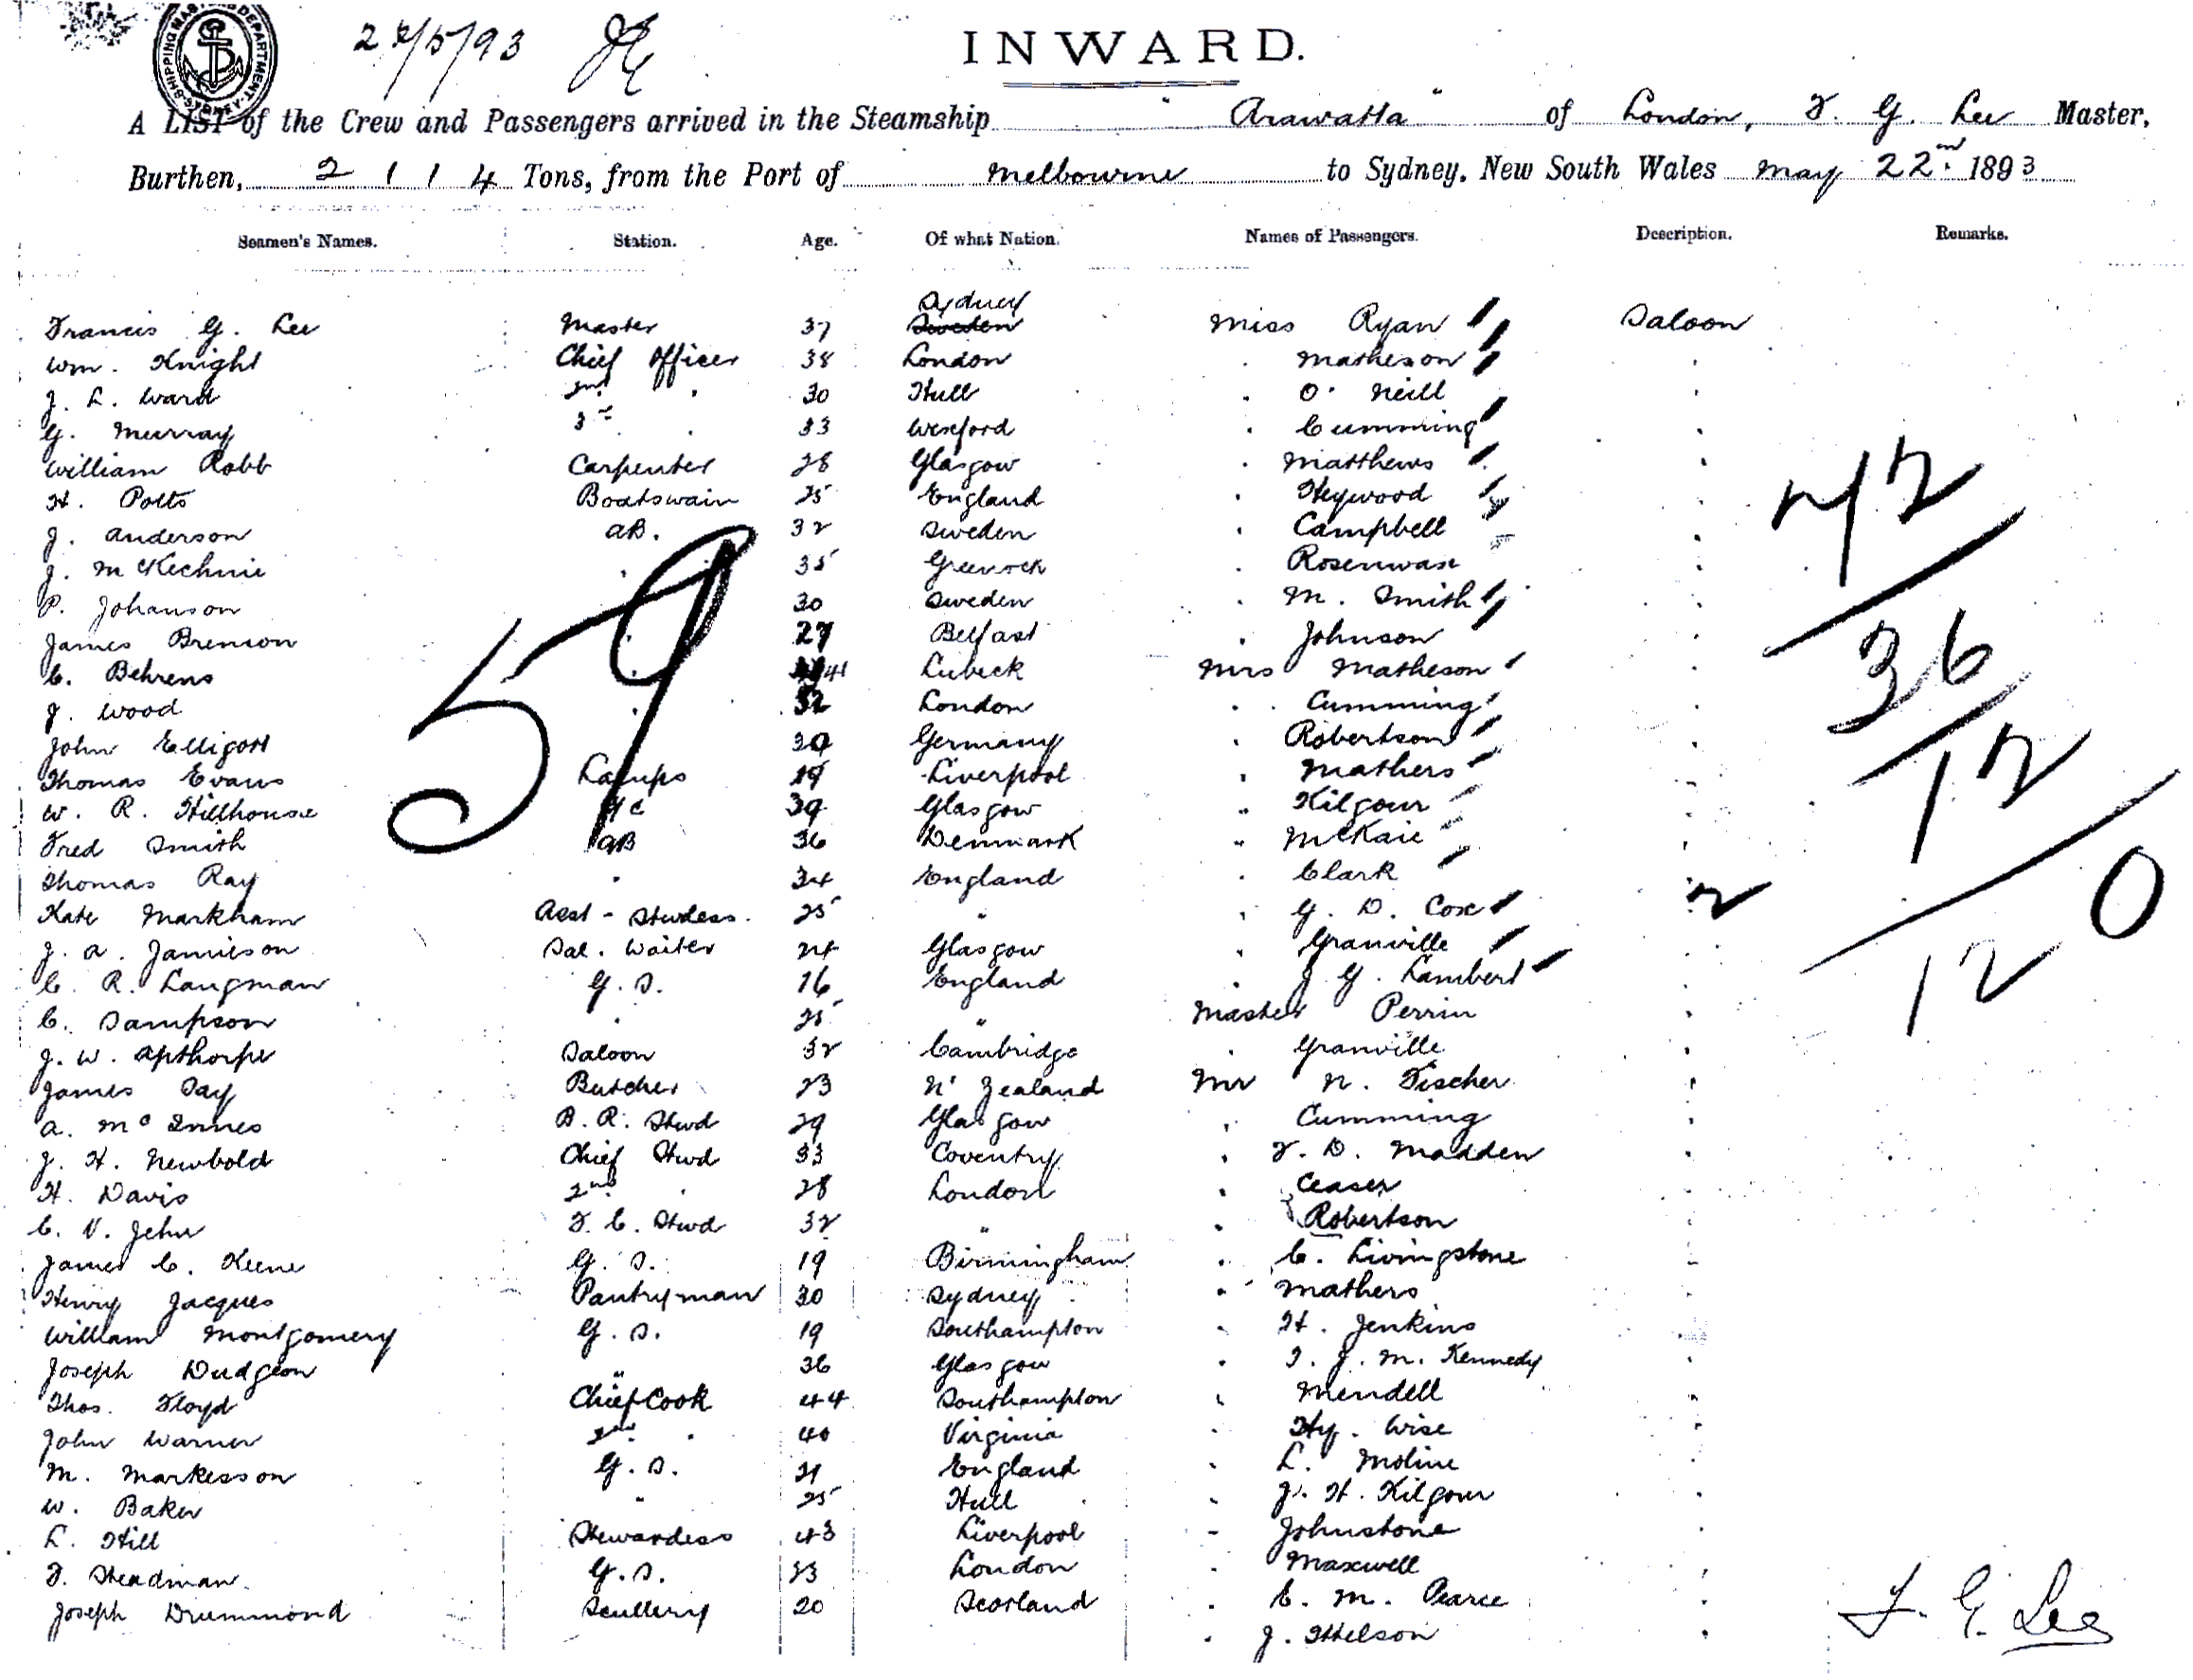 SHIPPING MASTERS DEPARTMENT
22/5/93
INWARD.
A LIST of the Crew and Passengers arrived in the Steamship "Arawatta" of London, F. G. Lee Master,
Burthen, 2114 Tons, from the Port of Melbourne to Sydney, New South Wales May 22nd 1893
Seamen's Names. Station. Age. Of what Nation. Names of Passengers. Description. Remarks.
Sydney
Francis G. Lee Master 37 Sweden Miss Ryan Saloon
Wm. Knight Chief Officer 38 London " Matheson "
J. L. Ward 2nd " 30 Hull " O'Neill "
G. Murray 3rd " 33 Wexford " Cumming "
William Robb Carpenter 28 Glasgow " Matthews "
H. Potts Boatswain 25 England " Heywood "
J. Anderson AB. 32 Sweden " Campbell "
J. McKechnie " 35 Greenock "
P. Johanson " 30 Sweden " M. Smith "
James Brenson " 27 Belfast " Johnson "
C. Behrens " 41 Lubeck Mrs Matheson "
J. Wood " 32 London " Cumming "
John Elligott 30 Germany " Robertson "
Thomas Evans Lamps 19 Liverpool " Mathers "
W. R. Hillhouse 39 Glasgow " Kilgour "
Fred Smith AB 36 Denmark " McKaie "
Thomas Ray " 34 England " Clark "
Kate Markham Asst - Stwdess. 25 " " G. D. Cox "
J. A. Jamieson Sal. Waiter 24 Glasgow " Granville "
C. R. Langman G. S. 16 England " J G. Lambert "
C. Sampson " 25 " Master Perrin "
J. W. Apthorpe Saloon 32 Cambridge " Granville "
James Day Butcher 23 N' Zealand Mr N. Fischer "
A. McInnes B. R. Stwd 29 Glasgow " Cumming "
J. H. Newbold Chief Stwd 33 Coventry " F. D. Madden "
H. Davis 2nd " 28 London " Ceaser "
C. V. Jehu F. C. Stwd 32 " " Robertson "
James C. Keene G. S. 19 Birmingham " C. Livingstone "
Henry Jacques Pantryman 30 Sydney " Mathers "
William Montgomery G. S. 19 Southampton " H. Jenkins "
Joseph Dudgeon " 36 Glasgow " J. M. Kennedy "
Thos. Floyd Chief Cook 44 Southampton " Mendell "
John Warner 2nd " 40 Virginia " Hy. Wise "
M. Markesson G. S. 21 England " L. Moline "
W. Baker " 25 Hull " J. H. Kilgour "
L. Hill Stewardess 43 Liverpool " Johnstone "
F. Steadman. G. S. 23 London " Maxwell "
Joseph Drummond Scullery 20 Scotland " C. M. Pearce "
" J. Ithelson "
59
2
72
36
12
0
12
F. G. Lee